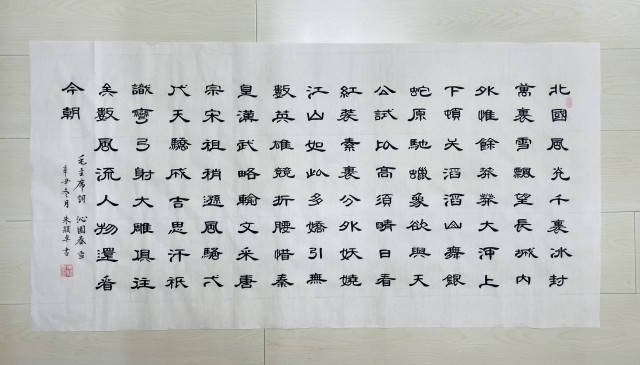 北國風光千裏冰封
萬裏雪飄望長城內
外惟餘莽莽大河上
下頓失滔滔山舞銀
蛇原馳蠟象欲與天
公試比高須晴日看
紅裝素裹分外妖嬈
江山如此多嬌引無
數英雄競折腰惜秦
皇漢武略輸文采唐
宗宋祖稍遜風騷弌
代天驕成吉思汗衹
識彎弓射大雕俱往
矣數風流人物還看
今朝
毛主席詞 沁園春雪
辛丑冬月 朱 書